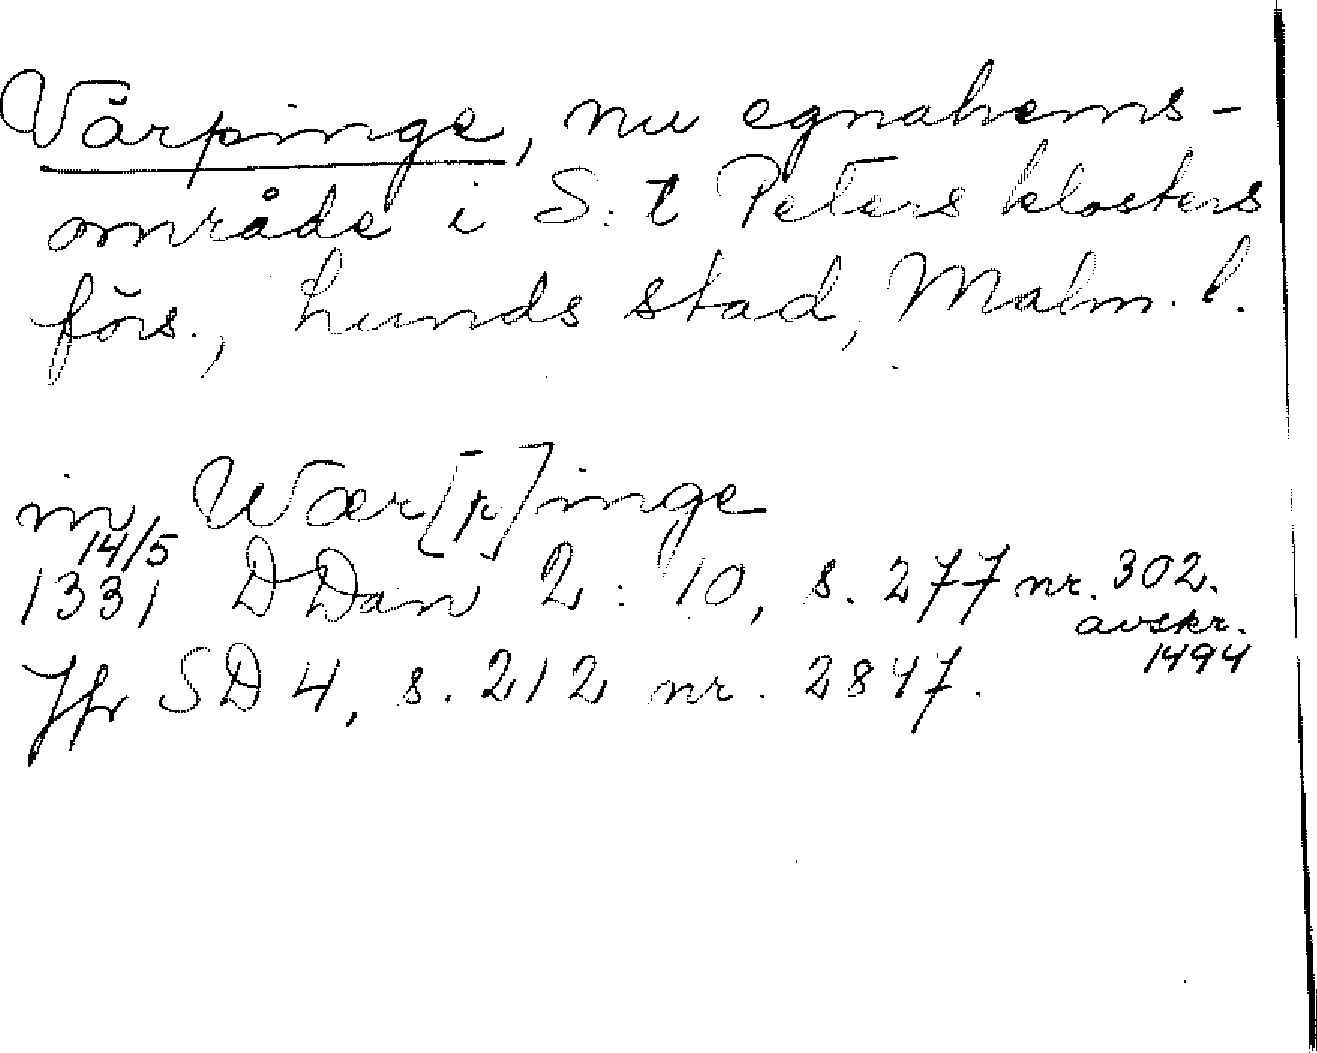 Värpinge, nu egnahems-
område i S:t Peters klosters
förs., Lunds stad, Malm. l.
in Wær[p]inge
14/5
1331 DDan 2:10, s. 277 nr. 302.
avskr.
1494
Jfr SD 4, s. 212 nr. 2847.